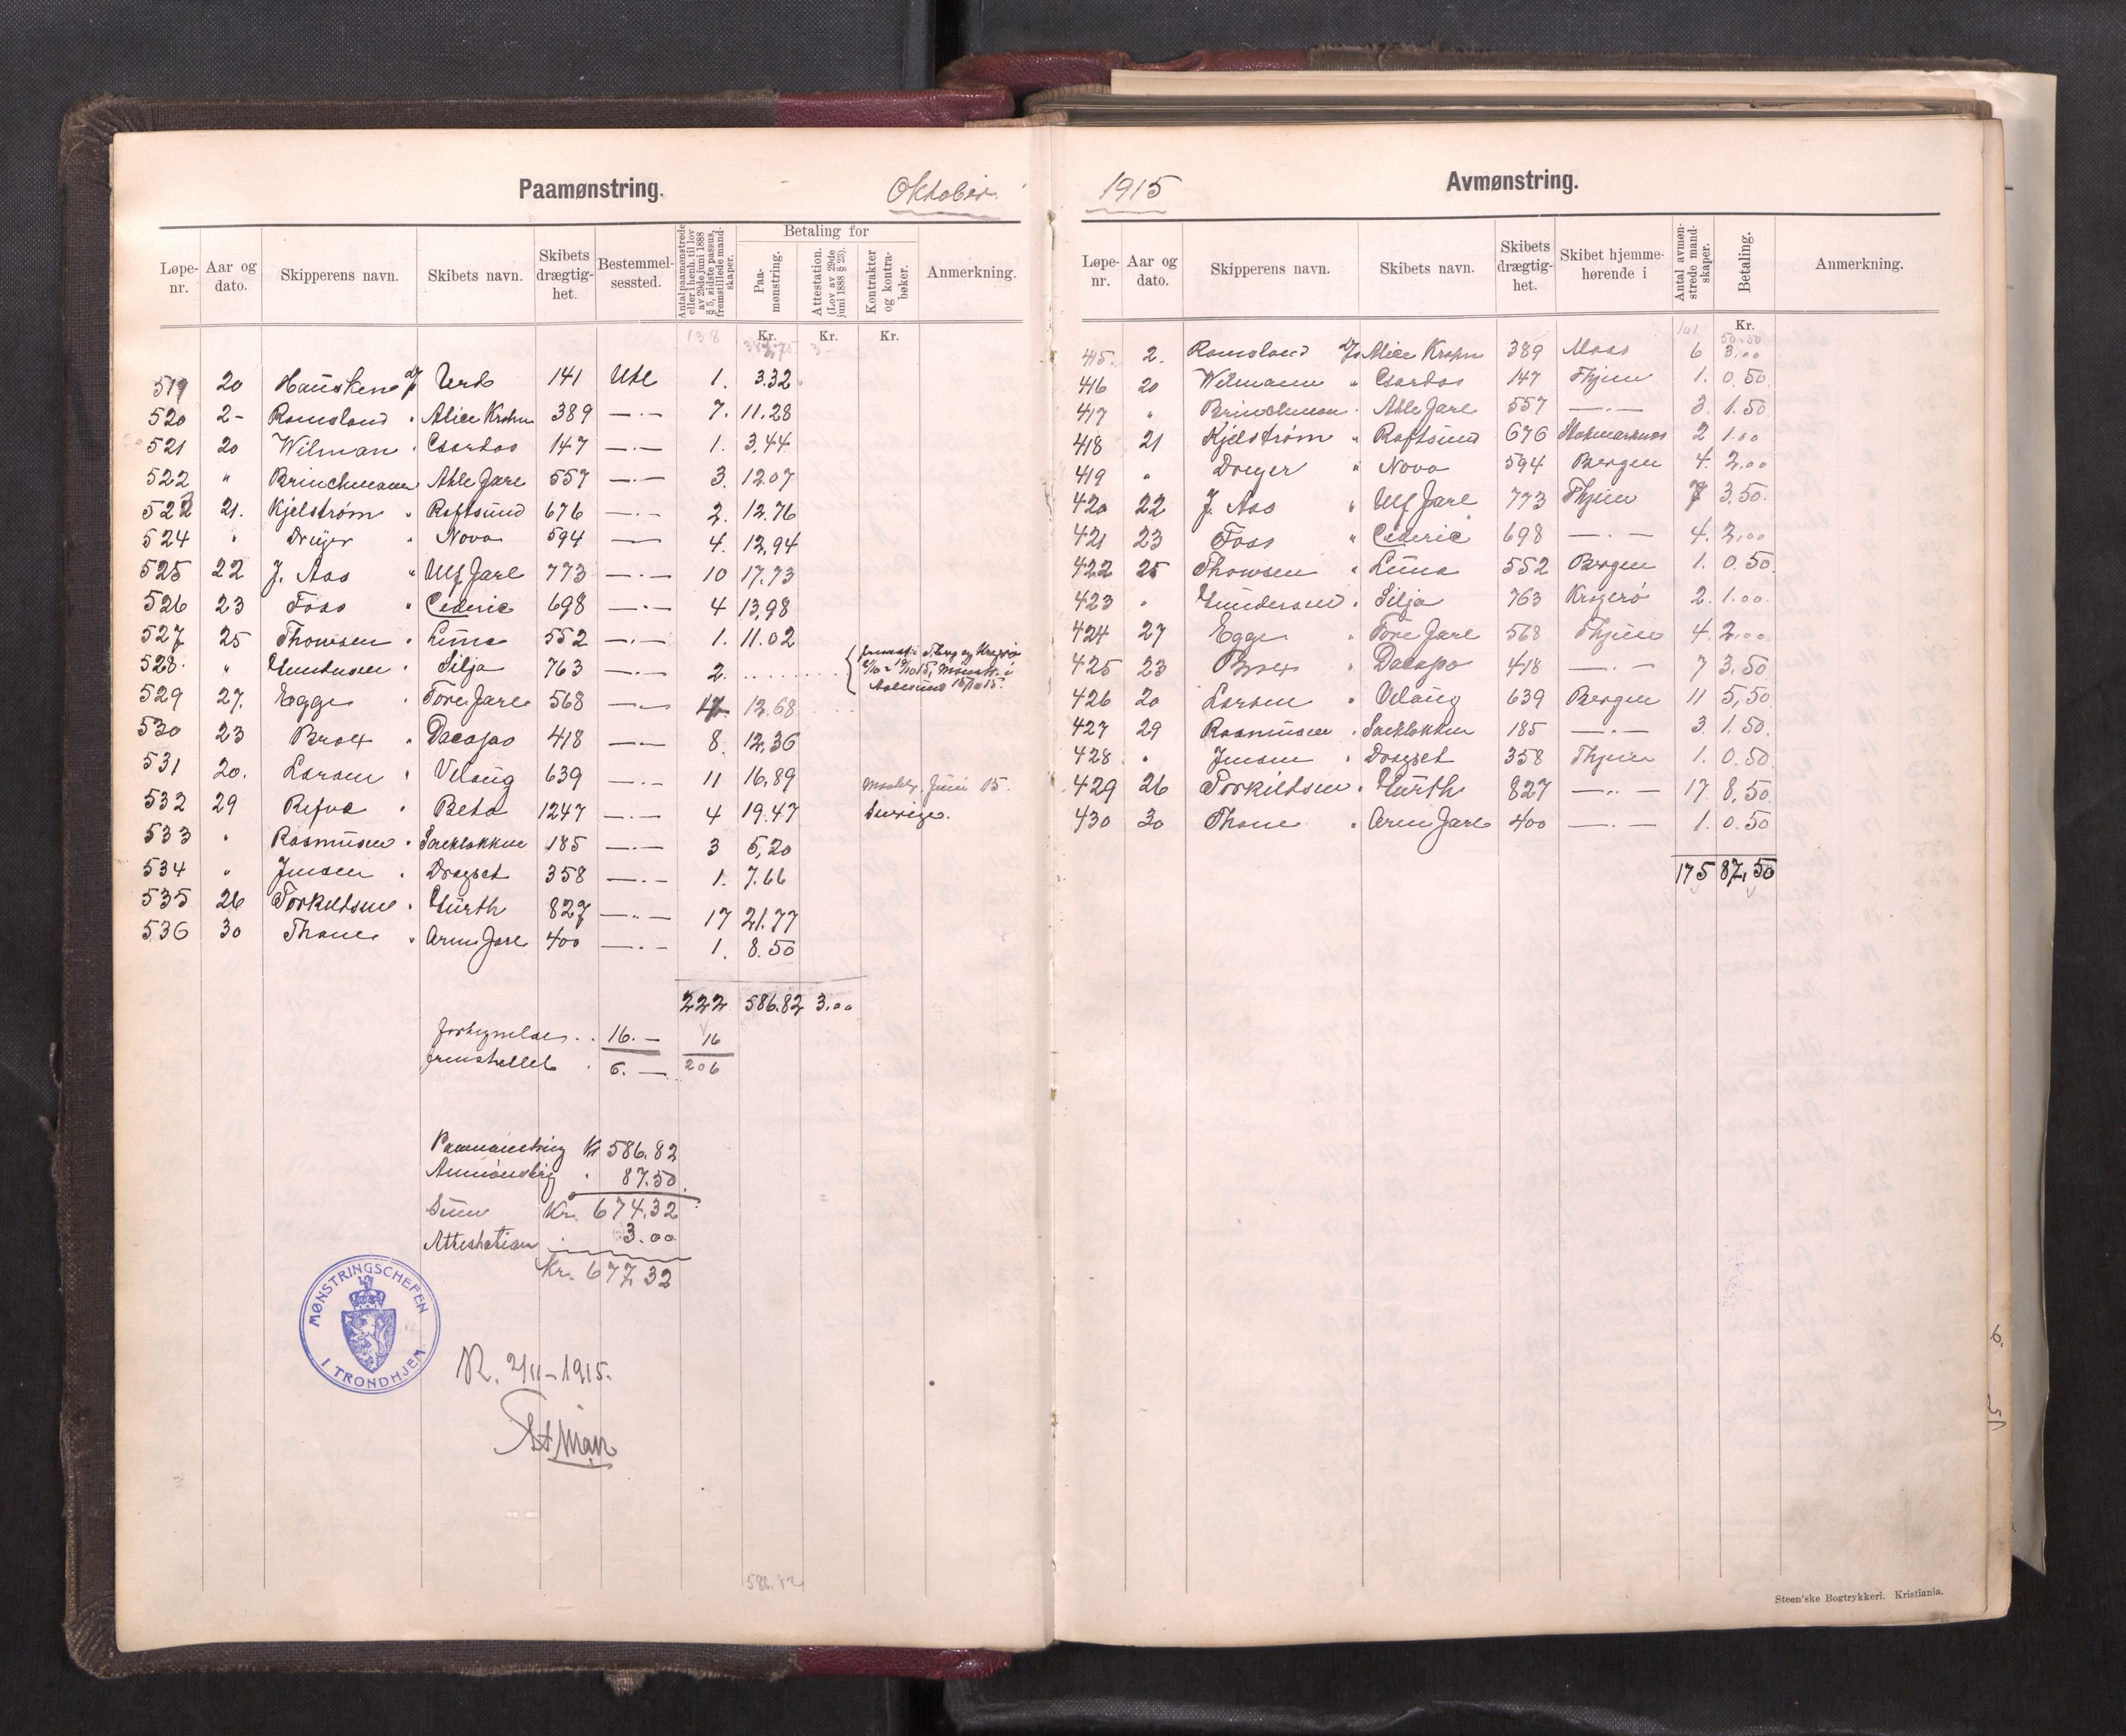 Paamønstring. Oktober
Løpe-nr. Aar og dato. Skipperens navn. Skibets navn. Skibets drægtig-het. Bestemmel-sessted. Antal paamønstrede eller i henh. til lov av 29de juni 1888 § 5, sidste passus, fremstillede mand-skaper. Betaling for Paa-mønstring. Attestation. (Lov av 29de juni 1888 § 23). Kontrakter og kontra-bøker. Anmerkning.
138 Kr. Kr. Kr.
3-
519 20 Hausken D/S Urd 141 Utl 1. 3.32
520 2- Ramsland " Alice Krohn 389 —"— 7. 11.28
521 20 Wilman " Csardas 147 —"— 1. 3.44
522 " Brinchmann Atle Jarl 557 —"— 3. 12.07
523 21. Kjelstrøm " Raftsund 676 —"— 2. 12.76
524 " Dreyer " Nova 594 — 4. 12,94
525 22 J. Aas " Ulf Jarl 773 —"— 10 17.73
526 23 Foss " Cederic 698 —"— 4 13,98
527 25 Thowsen " Luna 552 —"— 1. 11.02
528 " Gundersen " Silja 763 —"— 2.
529 27. Egge " Tore Jarl 568 —"— 12.68
530 23 Brox " Dacapo 418 —"— 8. 12.36
531 20. Larsen " Velaug 639 —"— 11 16,89 Juni 15.
532 29 Refva " Beta 1247 —"— 4 19.47 Sverige.
533 " Rasmussen " 185 —"— 3 5,20
534 " Jensen " Dragset 358 —"— 1. 7.66
535 26 Torkildsen " Gurth 827 —"— 17 21.77
536 30 Thane " Arne Jarl 400 —"— 1. 8.50
222 586.82 3.00
forhyrelse . . 16.— 16
fremstillet . 6.— 206
Paamønstring Kr 586.82
Avmønstring " 87.50
Sum Kr. 674.32
Attestation " 3.00
Kr. 677.32
MØNSTRINGSCHEFEN I TRONDHJEM
R. 2/11-1915.
586.82
1915 Avmønstring.
Løpe-nr. Aar og dato. Skipperens navn. Skibets navn. Skibets drægtig-het. Skibet hjemme-hørende i Antal avmøn-strede mand-skaper. Betaling. Anmerkning.
101 Kr.
50.50
415. 2. Ramsland D/S Alice Krohn 389 Moss 6 3.00
416 20 Wilmann " Csardas 147 Thjem 1. 0.50
417 " Brinchmann " Atle Jarl 557 —"— 3. 1.50
418 21 Kjelstrøm " Raftsund 676 Stokmarknes 2 1.00
419 " Dreyer " Nova 594 Bergen 4. 2.00
420 22 J. Aas " Ulf Jarl 773 Thjem 7 3.50
421 23 Foss " Cederic 698 —"— 4. 2.00
422 25 Thowsen " Luna 552 Bergen 1. 0.50
423 " Gundersen " Silja 763 Kragerø 2. 1.00
424 27 Egge " Tore Jarl 568 Thjem 4. 2.00
425 23 Brox " Dacapo 418 —"— 7 3.50
426 20 Larsen " Velaug 639 Bergen 11 5,50
427 29 Rasmussen " 185 —"— 3. 1.50
428 " Jensen " Dragset 358 Thjem 1. 0.50
429 26 Torkildsen " Gurth 827 —"— 17 8,50
430 30 Thane " Arne Jarl 400 —"— 1. 0.50
175 87,50
Steen'ske Bogtrykkeri. Kristiania.